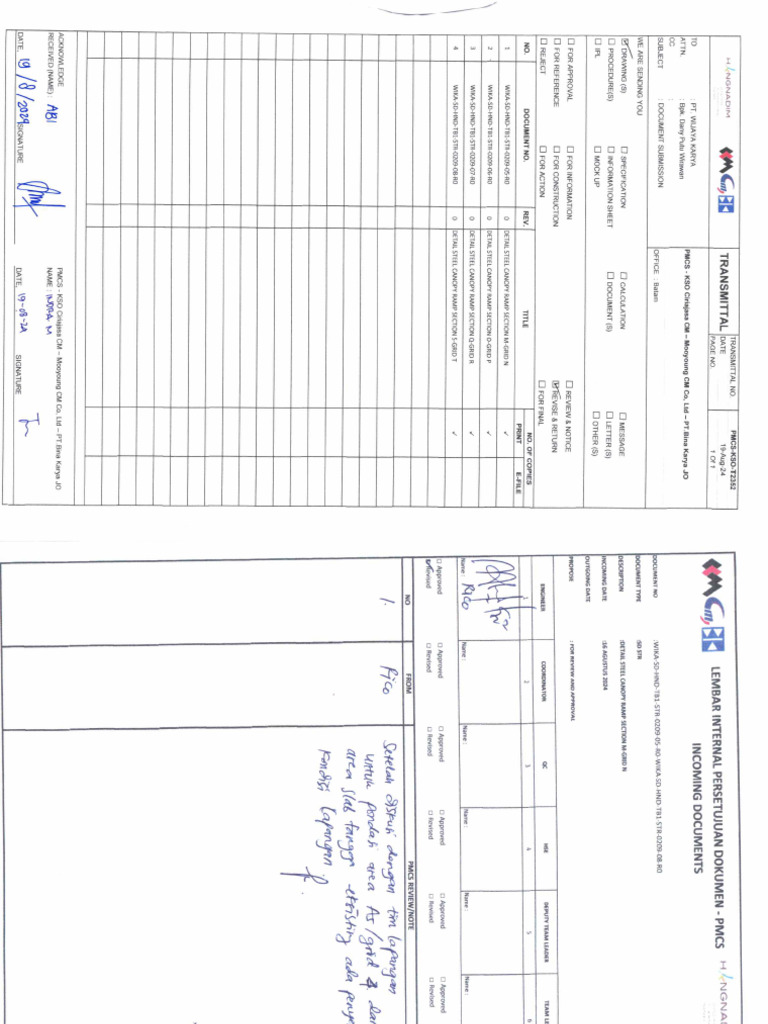 HANGNADIM
TRANSMITTAL
TRANSMITTAL NO. PMCS-KSO-T2352
DATE 19-Aug-24
PAGE NO. 1 Of 1
TO : PT. WIJAYA KARYA
ATTN. : Bpk. Dany Putu Wirawan
CC :
SUBJECT : DOCUMENT SUBMISSION
PMCS - KSO Ciriajasa CM – Mooyoung CM Co, Ltd – PT.Bina Karya JO
OFFICE : Batam
WE ARE SENDING YOU
☑ DRAWING (S) ☐ SPECIFICATION ☐ CALCULATION ☐ MESSAGE
☐ PROCEDURE(S) ☐ INFORMATION SHEET ☐ DOCUMENT (S) ☐ LETTER (S)
☐ IPL ☐ MOCK UP ☐ OTHER (S)
☐ FOR APPROVAL ☐ FOR INFORMATION ☐ REVIEW & NOTICE
☐ FOR REFERENCE ☐ FOR CONSTRUCTION ☑ REVISE & RETURN
☐ REJECT ☐ FOR ACTION ☐ FOR FINAL
NO. DOCUMENT NO. REV. TITLE NO. OF COPIES
PRINT E-FILE
1 WIKA-SD-HND-TB1-STR-0209-05-R0 0 DETAIL STEEL CANOPY RAMP SECTION M-GRID N ✓
2 WIKA-SD-HND-TB1-STR-0209-06-R0 0 DETAIL STEEL CANOPY RAMP SECTION O-GRID P ✓
3 WIKA-SD-HND-TB1-STR-0209-07-R0 0 DETAIL STEEL CANOPY RAMP SECTION Q-GRID R ✓
4 WIKA-SD-HND-TB1-STR-0209-08-R0 0 DETAIL STEEL CANOPY RAMP SECTION S-GRID T ✓
ACKNOWLEDGE
RECEIVED (NAME) : ABI
DATE, 19/8/2024 SIGNATURE
PMCS - KSO Ciriajasa CM – Mooyoung CM Co, Ltd – PT.Bina Karya JO
NAME : INDRA M
DATE, 19-08-24 SIGNATURE
LEMBAR INTERNAL PERSETUJUAN DOKUMEN - PMCS
INCOMING DOCUMENTS
HANGNADIM
DOCUMENT NO :WIKA-SD-HND-TB1-STR-0209-05-R0-WIKA-SD-HND-TB1-STR-0209-08-R0
DOCUMENT TYPE :SD STR
DESCRIPTION :DETAIL STEEL CANOPY RAMP SECTION M-GRID N
INCOMING DATE :16 AGUSTUS 2024
OUTGOING DATE
PROPOSE : FOR REVIEW AND APPROVAL
ENGINEER COORDINATOR QC HSE DEPUTY TEAM LEADER TEAM LE
1 2 3 4 5 6
Name : Rico Name : Name : Name : Name : Name :
☐ Approved ☐ Approved ☐ Approved ☐ Approved ☐ Approved ☐ Approved
☑ Revised ☐ Revised ☐ Revised ☐ Revised ☐ Revised ☐ Revised
NO FROM PMCS REVIEW/NOTE
1. Rico Setelah diskusi dengan tim lapangan
untuk pondasi area As/grid dan
area slab tangga existing ada penye
kondisi lapangan